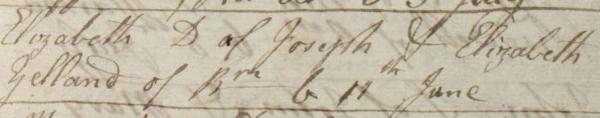 Elizabeth D of Joseph & Elizabeth
Yelland of Brn b 11th June